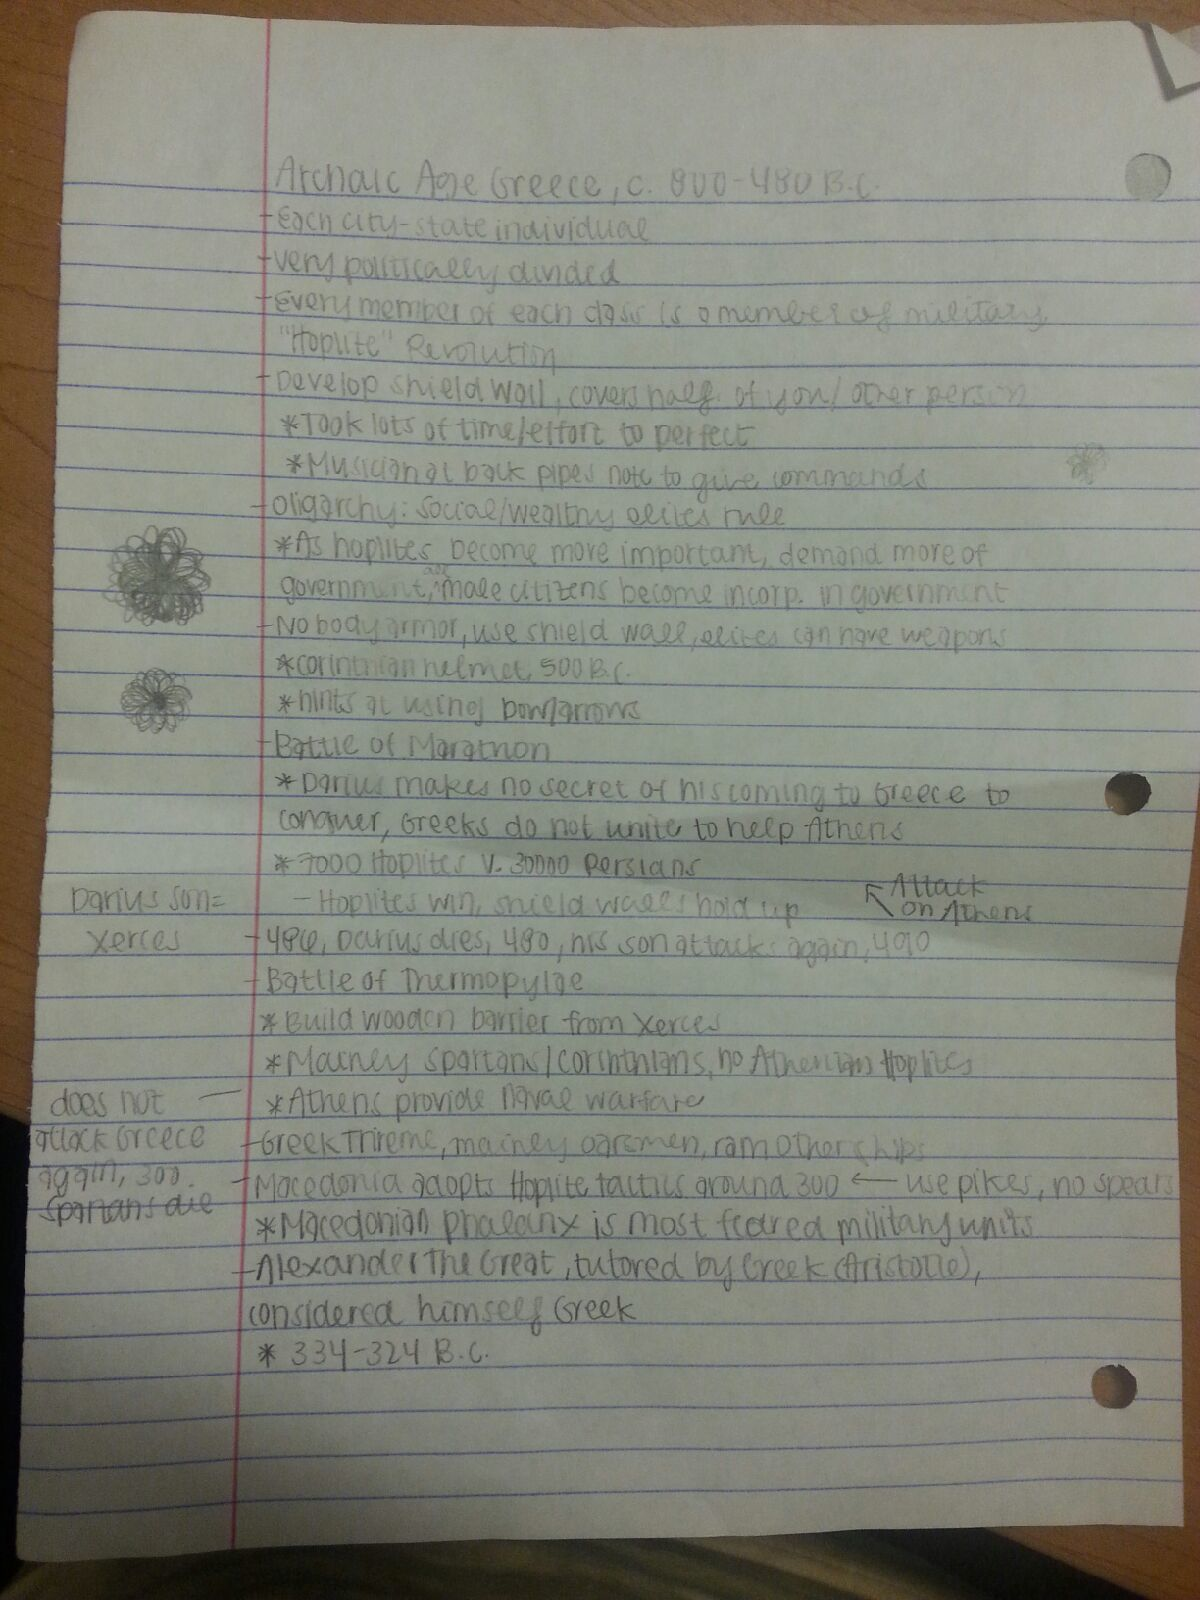 Archaic Age Greece, c. 800-480 B.C.
- Each city-state individual
- Very politically divided
- Every member of each class is a member of military,
"Hoplite" Revolution
- Develop shield wall, covers half of you/other person
* Took lots of time/effort to perfect
* Musician at back pipes note to give commands
- Oligarchy: Social/wealthy elites rule
* As hoplites become more important, demand more of
government, all male citizens become incorp. in government
- No body armor, use shield wall, elites can have weapons
* Corinthian helmet, 500 B.C.
* hints at using bow/arrows
- Battle of Marathon
* Darius makes no secret of his coming to Greece to
conquer, Greeks do not unite to help Athens
* 7000 Hoplites v. 30000 Persians
- Hoplites win, shield walls hold up
Attack
on Athens
Darius son=
Xerces
- 486, Darius dies, 480, his son attacks again, 490
- Battle of Thermopylae
* Build wooden barrier from Xerces
* Mainey Spartans/Corinthians, no Athenian Hoplites
* Athens provide naval warfare
does not
attack Greece
again, 300.
Spartans die
- Greek Trireme, mainey oarsmen, ram other ships
- Macedonia adopts Hoplite tactics around 300 ← use pikes, no spears
* Macedonian phalanx is most feared military units
- Alexander The Great, tutored by Greek (Aristotle),
considered himself Greek
* 334-324 B.C.